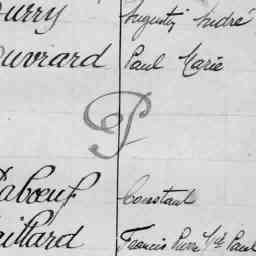 Augustin André
Ouvrard Paul Marie
P
Paboeuf Constant
Paillard Francis Pierre Paul